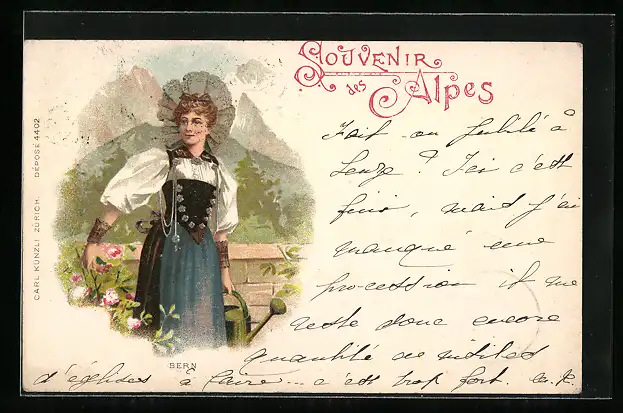 SOUVENIR
des Alpes
Fait-on jubilé à
? Ici c'est
fini, mais j'ai
manqué une
procession il me
reste donc encore
quantité de visites
d'églises à faire... c'est trop fort.
BERN
CARL KÜNZLI ZÜRICH. DÉPOSÉ 4402